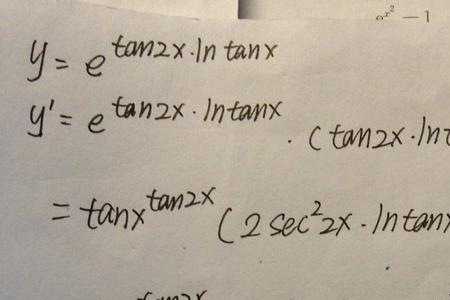 e^{x^2} - 1
y = e^{tan2x·ln tanx}
y' = e^{tan2x·lntanx} · (tan2x·ln
= tanx^{tan2x} (2sec^2 2x·lntanx
tan2x